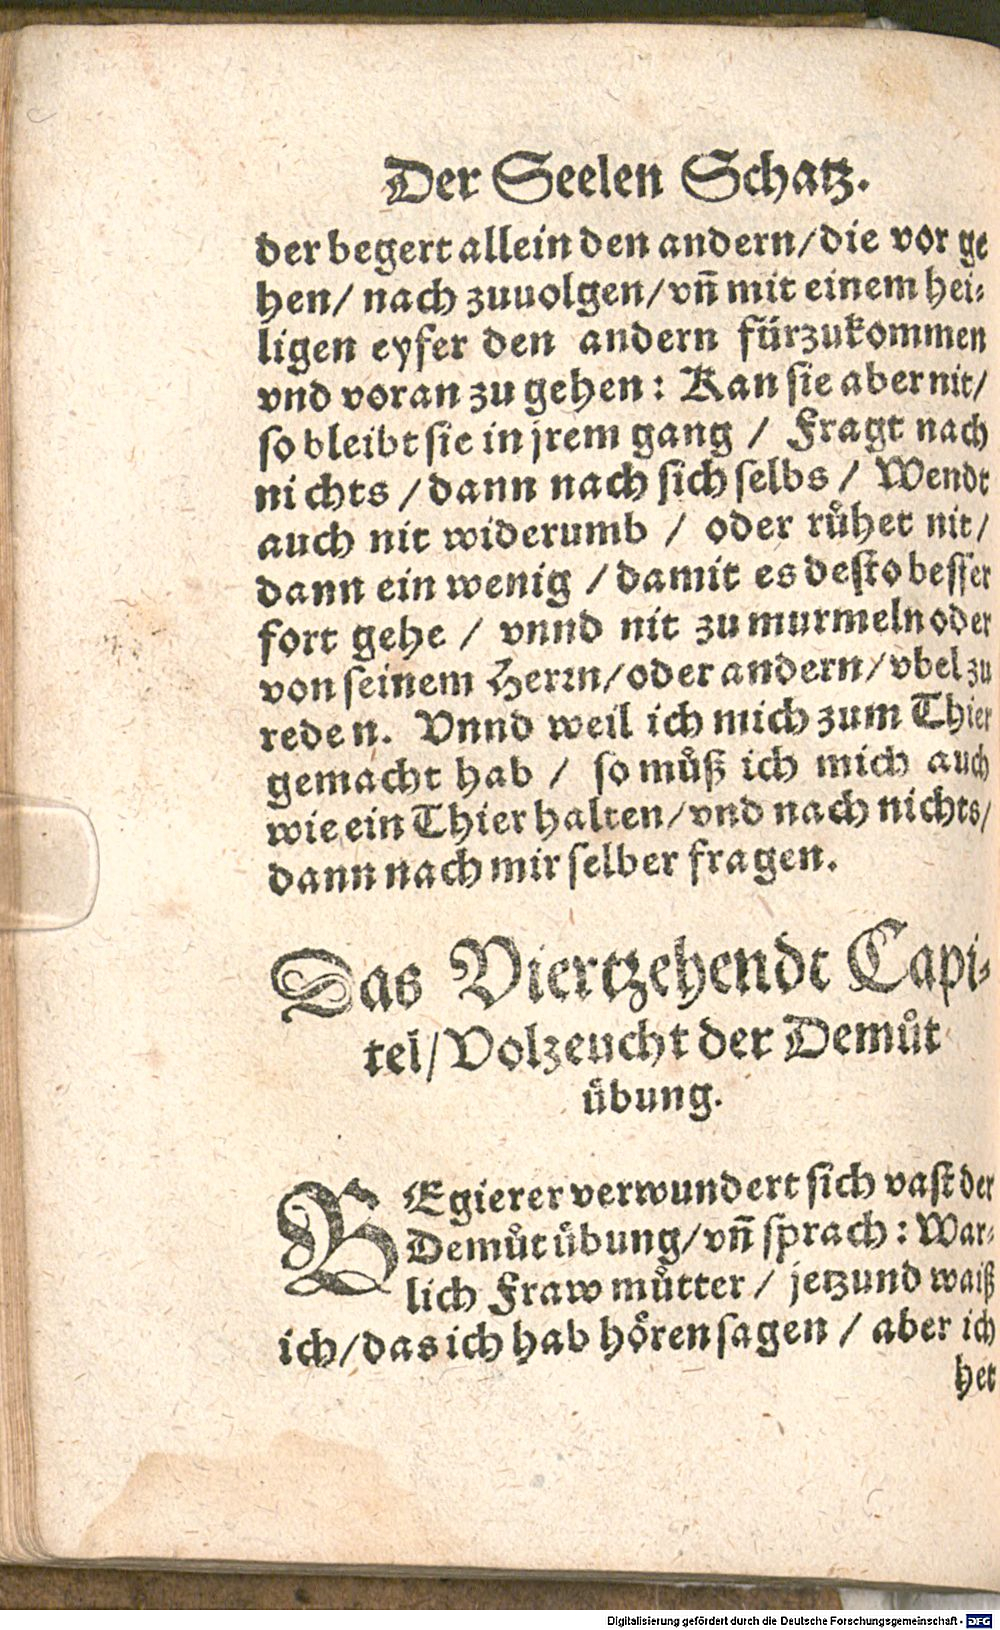 Der Seelen Schatz.
der begert allein den andern/die vor ge
hen/ nach zuuolgen/vñ mit einem hei-
ligen eyfer den andern fürzukommen
vnd voran zu gehen: Kan sie aber nit/
so bleibt sie in jrem gang / Fragt nach
nichts /dann nach sich selbs / Wendt
auch nit widerumb / oder růhet nit/
dann ein wenig /damit es desto besser
fort gehe / vnnd nit zu murmeln oder
von seinem Herrn/oder andern/vbel zu
reden. Vnnd weil ich mich zum Thier
gemacht hab / so můß ich mich auch
wie ein Thier halten/vnd nach nichts/
dann nach mir selber fragen.
Das Viertzehendt Capi-
tel/Volzeucht der Demůt
übung.
BEgierer verwundert sich vast der
Demůt übung/vñ sprach: War-
lich Fraw můtter / jetzund waiß
ich/das ich hab hören sagen / aber ich
het
Digitalisierung gefördert durch die Deutsche Forschungsgemeinschaft - DFG